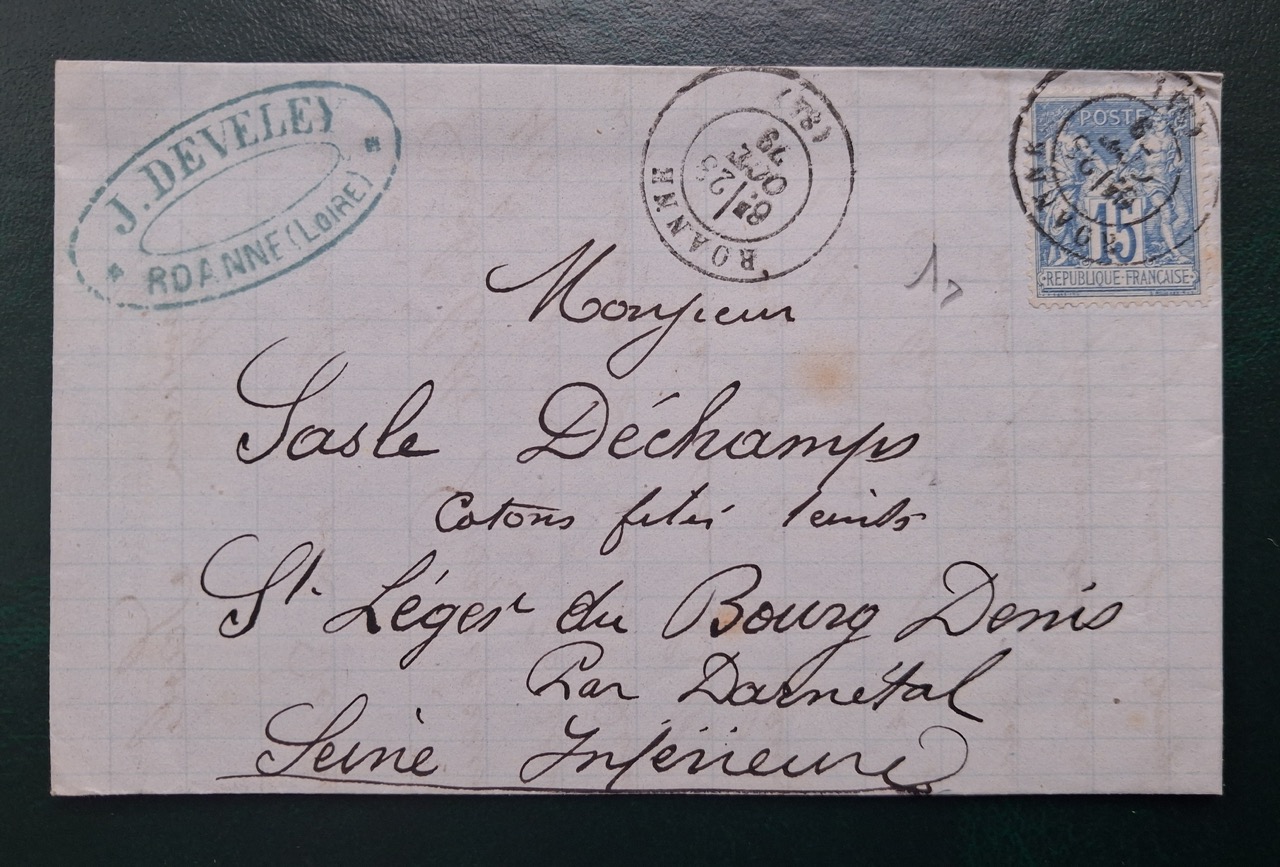 J. DEVELEY
ROANNE (LOIRE)
ROANNE (84)
6E/25
OCT
79
POSTE
15
REPUBLIQUE FRANÇAISE
ROANNE
Monsieur
Sasle Déchamps
Cotons filés teints
St. Léger du Bourg Denis
Par Darnétal
Seine Inférieure